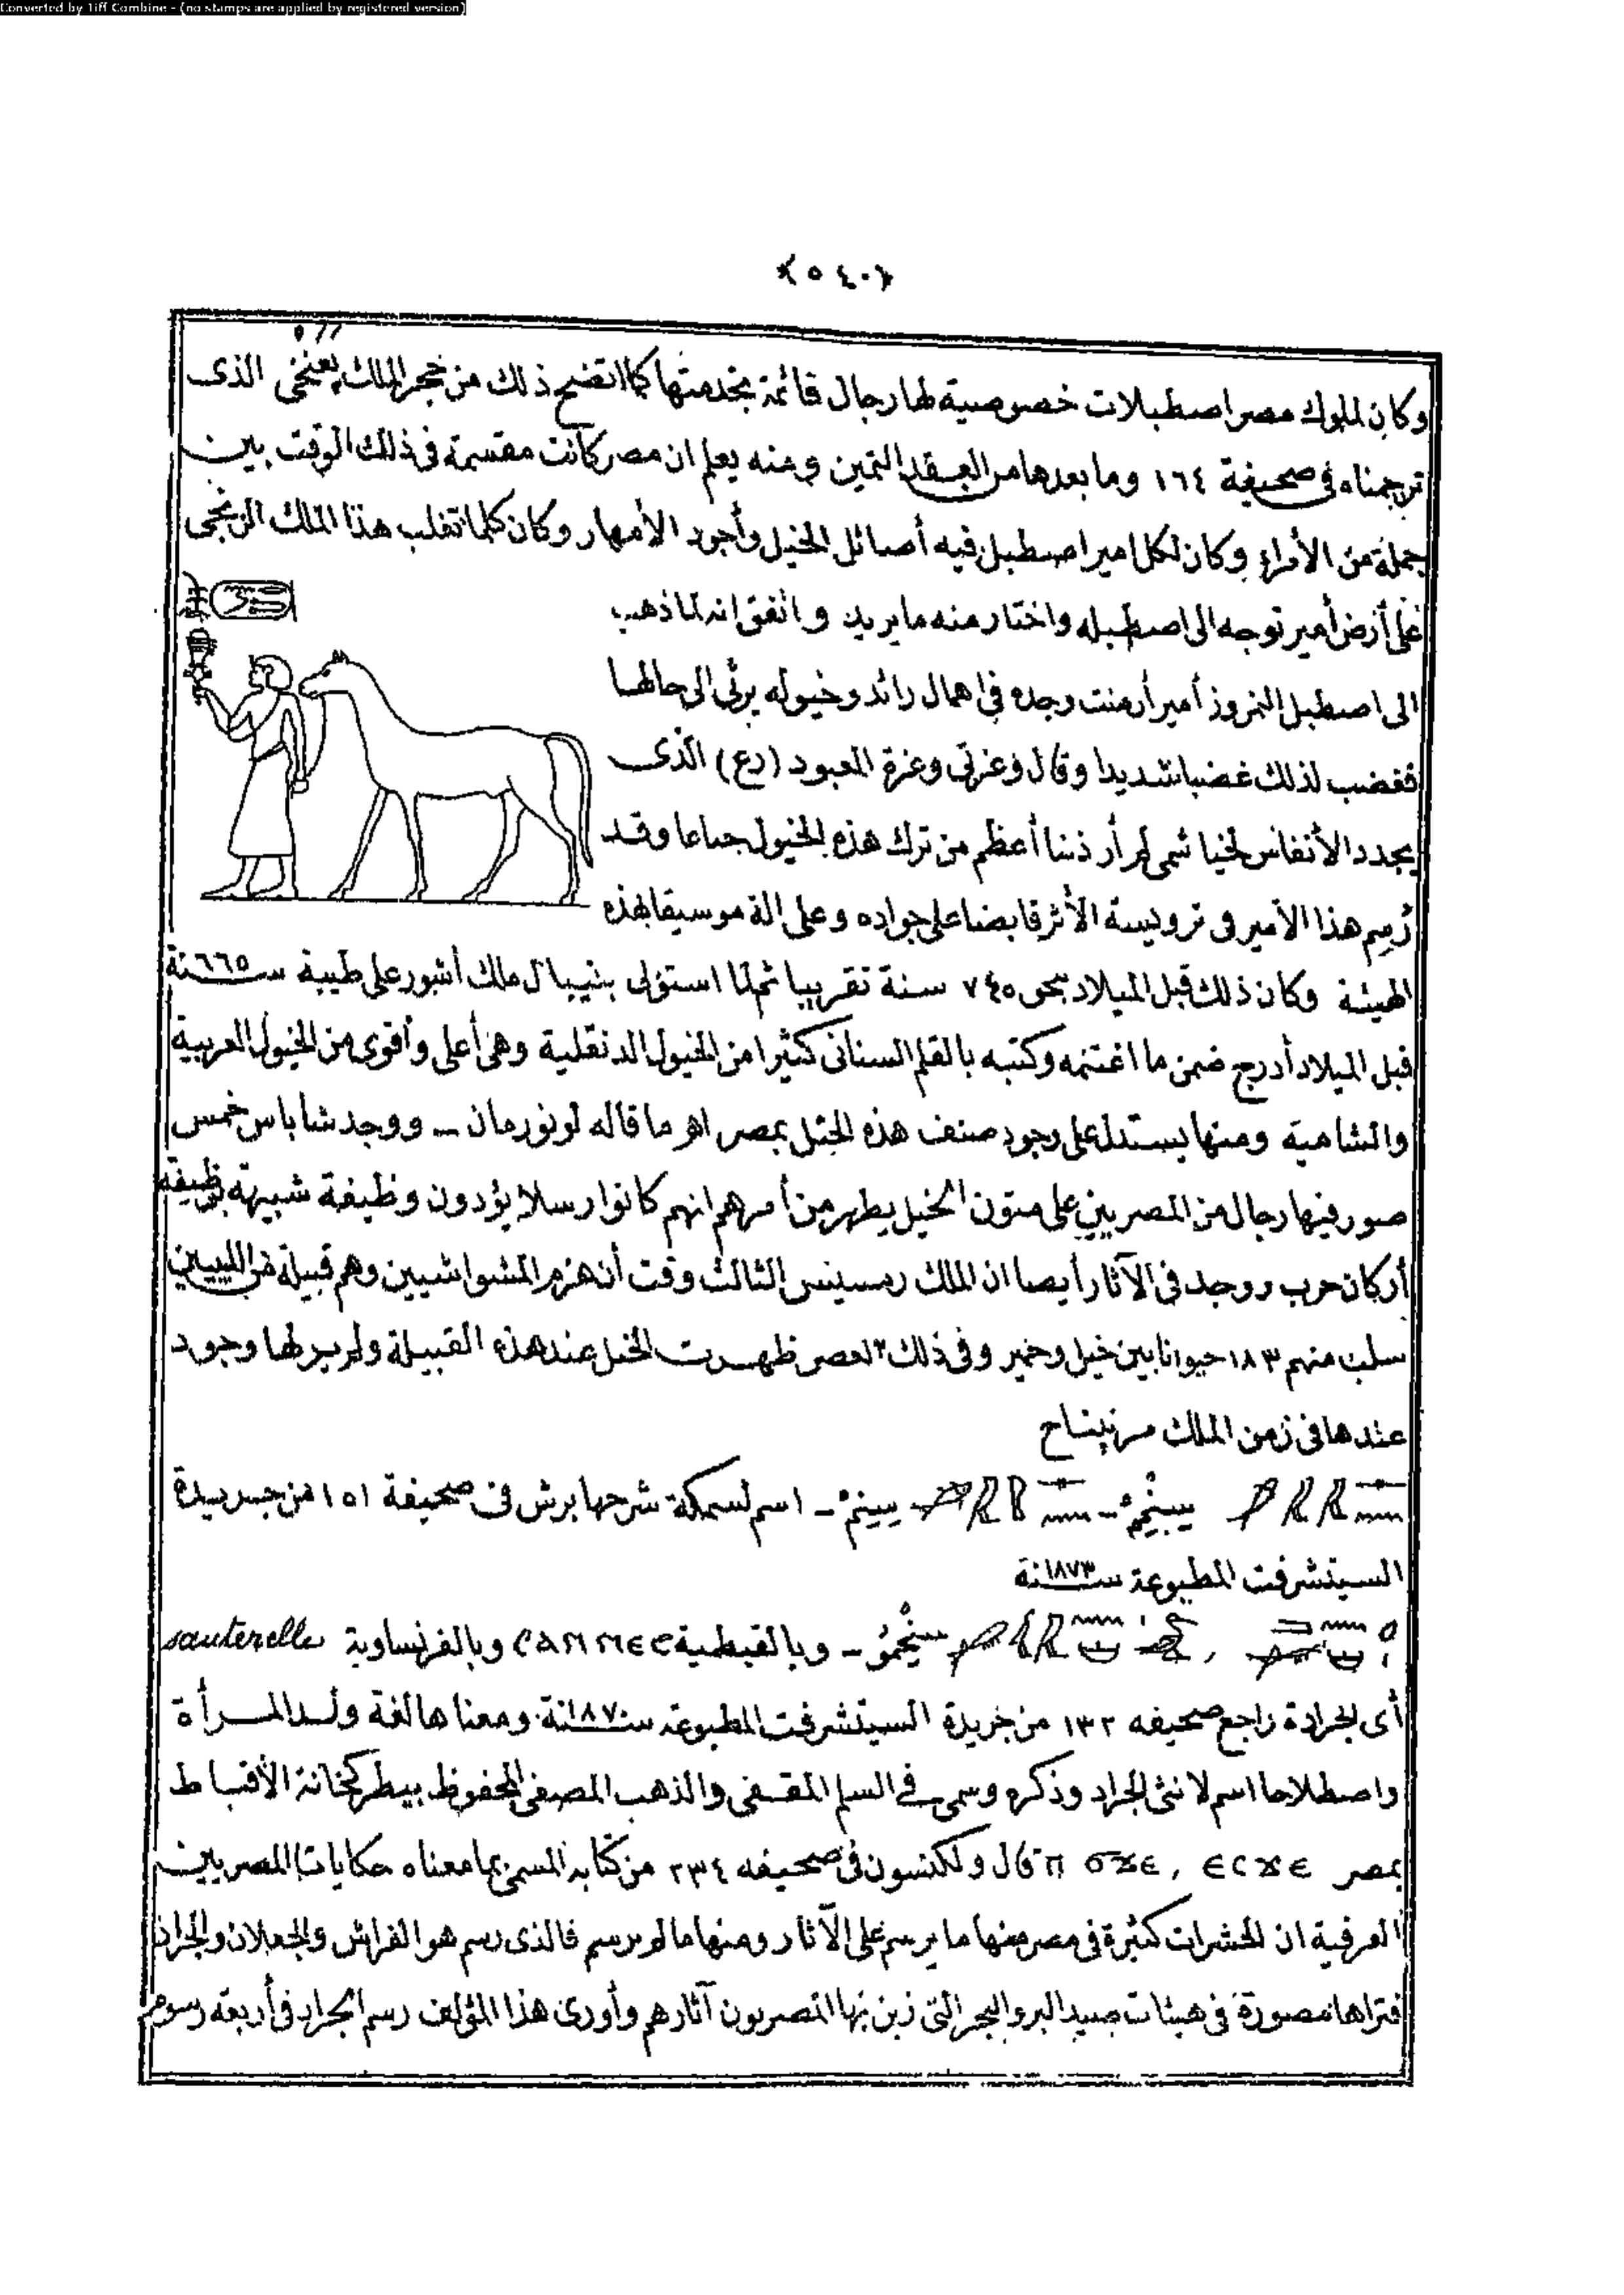 Converted by Tiff Combine - (no stamps are applied by registered version)
﴿٥٤٠﴾
وكان لملوك مصر اصطبلات خصوصية لها رجال قائمة بخدمتها كما اتضح ذلك من حجر الملك بعنخى الذى
ترجمناه فى صحيفة ١٦٤ وما بعدها من العقد الثمين ومنه يعلم ان مصر كانت مقسمة فى ذلك الوقت بين
جملة من الأمراء وكان لكل امير اصطبل فيه أصائل الخيل وأجود الأمهار وكان كلما تغلب هذا الملك الزنجى
على أرض أمير توجه الى اصطبله واختار منه ما يريد واتفق انه لما ذهب
الى اصطبل النمروز أمير أرمنت وجده فى اهمال زائد وخيوله يرثى الى حالها
فغضب لذلك غضبا شديدا وقال وعزتى وعزة المعبود (رع) الذى
يجدد الأنفاس لخياشمى لم أر ذنبا أعظم من ترك هذه الخيول جياعا وقد
رُسم هذا الأمير فى ترويسة الأثر قابضا على جواده وعلى الة موسيقا بهذه
الهيئة وكان ذلك قبل الميلاد بنحو ٧٤٥ سنة تقريبا ثم لما استولى بنيبال ملك أشور على طيبة سنة ٦٦٥
قبل الميلاد أدرج ضمن ما اغتنمه وكتبه بالقلم السنانى كثيرا من الخيول الدنقلية وهى أعلى وأقوى من الخيول العربية
والشامية ومنها يستدل على وجود صنف هذه الخيل بمصر اهـ ما قاله لونورمان ـ ووجد شاباس خمس
صور فيها رجال من المصريين على متون الخيل يظهر من أمرهم انهم كانوا رسلا يؤدون وظيفة شبيهة بوظيفة
أركان حرب ووجد فى الآثار أيضا ان الملك رمسيس الثالث وقت أن هزم المشواشيين وهم قبيلة من الليبيين
سلب منهم ١٨٣ حيوانا بين خيل وحمير وفى ذلك العصر ظهرت الخيل عند هذه القبيلة ولم ير لها وجود
عندها فى زمن الملك مرنپتاح
ـ اسم لسمكة شرحها برش فى صحيفة ١٥١ من جريدة
السيتشرفت المطبوعة سنة ١٨٧٣
ـ وبالقبطية CANNEC وبالفرنساوية sauterelle
أى الجرادة راجع صحيفه ١٣٢ من جريدة السيتشرفت المطبوعة سنة ١٨٧٠ ومعناها لغة ولد المرأة
واصطلاحا اسم لانثى الجراد وذكره وسمى فى السلم المقفى والذهب المصفى المحفوظ ببطركخانة الأقباط
بمصر قال ولكنسون فى صحيفه ٢٣٤ من كتابه المسمى بما معناه حكايات المصريين
العرفية ان الحشرات كثيرة فى مصر منها ما يرسم على الآثار ومنها ما لم يرسم فالذى رسم هو الفراش والجعلان والجراد
فتراها مصورة فى هيئات صيد البر والبحر التى زين بها المصريون آثارهم وأورى هذا المؤلف رسم الجراد فى أربعة رسوم